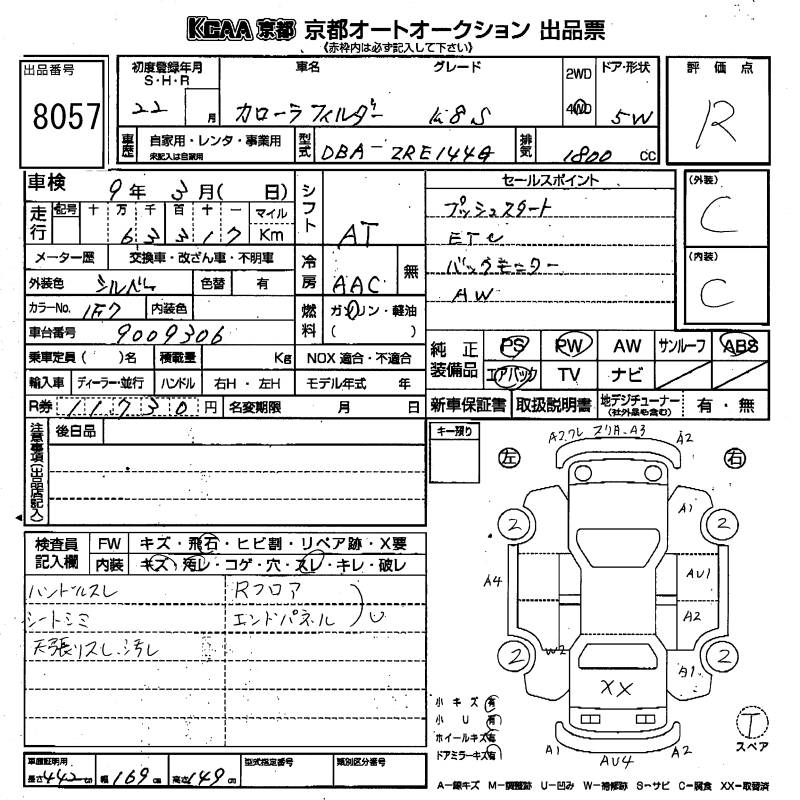 KCAA 京都 京都オートオークション 出品票
《赤枠内は必ず記入して下さい》
出品番号
8057
初度登録年月
S・H・R
22 月
車名
カローラフィルダー
グレード
1.8S
2WD
4WD
ドア・形状
5W
評価点
R
車歴
自家用・レンタ・事業用
未記入は自家用
型式
DBA-ZRE144G
排気
1800 cc
車検
9年 3月( 日)
走行
記号 十 万 千 百 十 一 マイル
6 3 3 1 7 Km
シフト
AT
セールスポイント
プッシュスタート
ETC
バックモニター
AW
(外装)
C
(内装)
C
メーター歴 交換車・改ざん車・不明車
外装色 シルバー 色替 有
冷房 AAC 無
カラーNo. 1F7 内装色
燃料 ガソリン・軽油
( )
車台番号 9009306
乗車定員( )名 積載量 Kg NOX 適合・不適合
輸入車 ディーラー・並行 ハンドル 右H・左H モデル年式 年
R券 11730円 名変期限 月 日
純正装備品
PS PW AW サンルーフ ABS
エアバック TV ナビ
新車保証書 取扱説明書 地デジチューナー
(社外品も含む)
有・無
注意事項(出品店記入)
後日品
キー残り
検査員記入欄
FW キズ・飛石・ヒビ割・リペア跡・X要
内装 キズ・汚レ・コゲ・穴・スレ・キレ・破レ
ハンドルスレ
シートシミ
天張リスレ、汚レ
Rフロア
エンドパネル
U
左
右
A2
A1
2 2
A4
AU1
A2
W2
2 2
A1
XX
A1 AU4 A2
小キズ 有
小U 有
ホイールキズ 有
ドアミラーキズ 有
T
スペア
車庫証明用
長さ 442cm 幅 169cm 高さ 149cm
型式指定番号
類別区分番号
A-線キズ M-調整跡 U-凹み W-補修跡 S-サビ C-腐食 XX-取替済